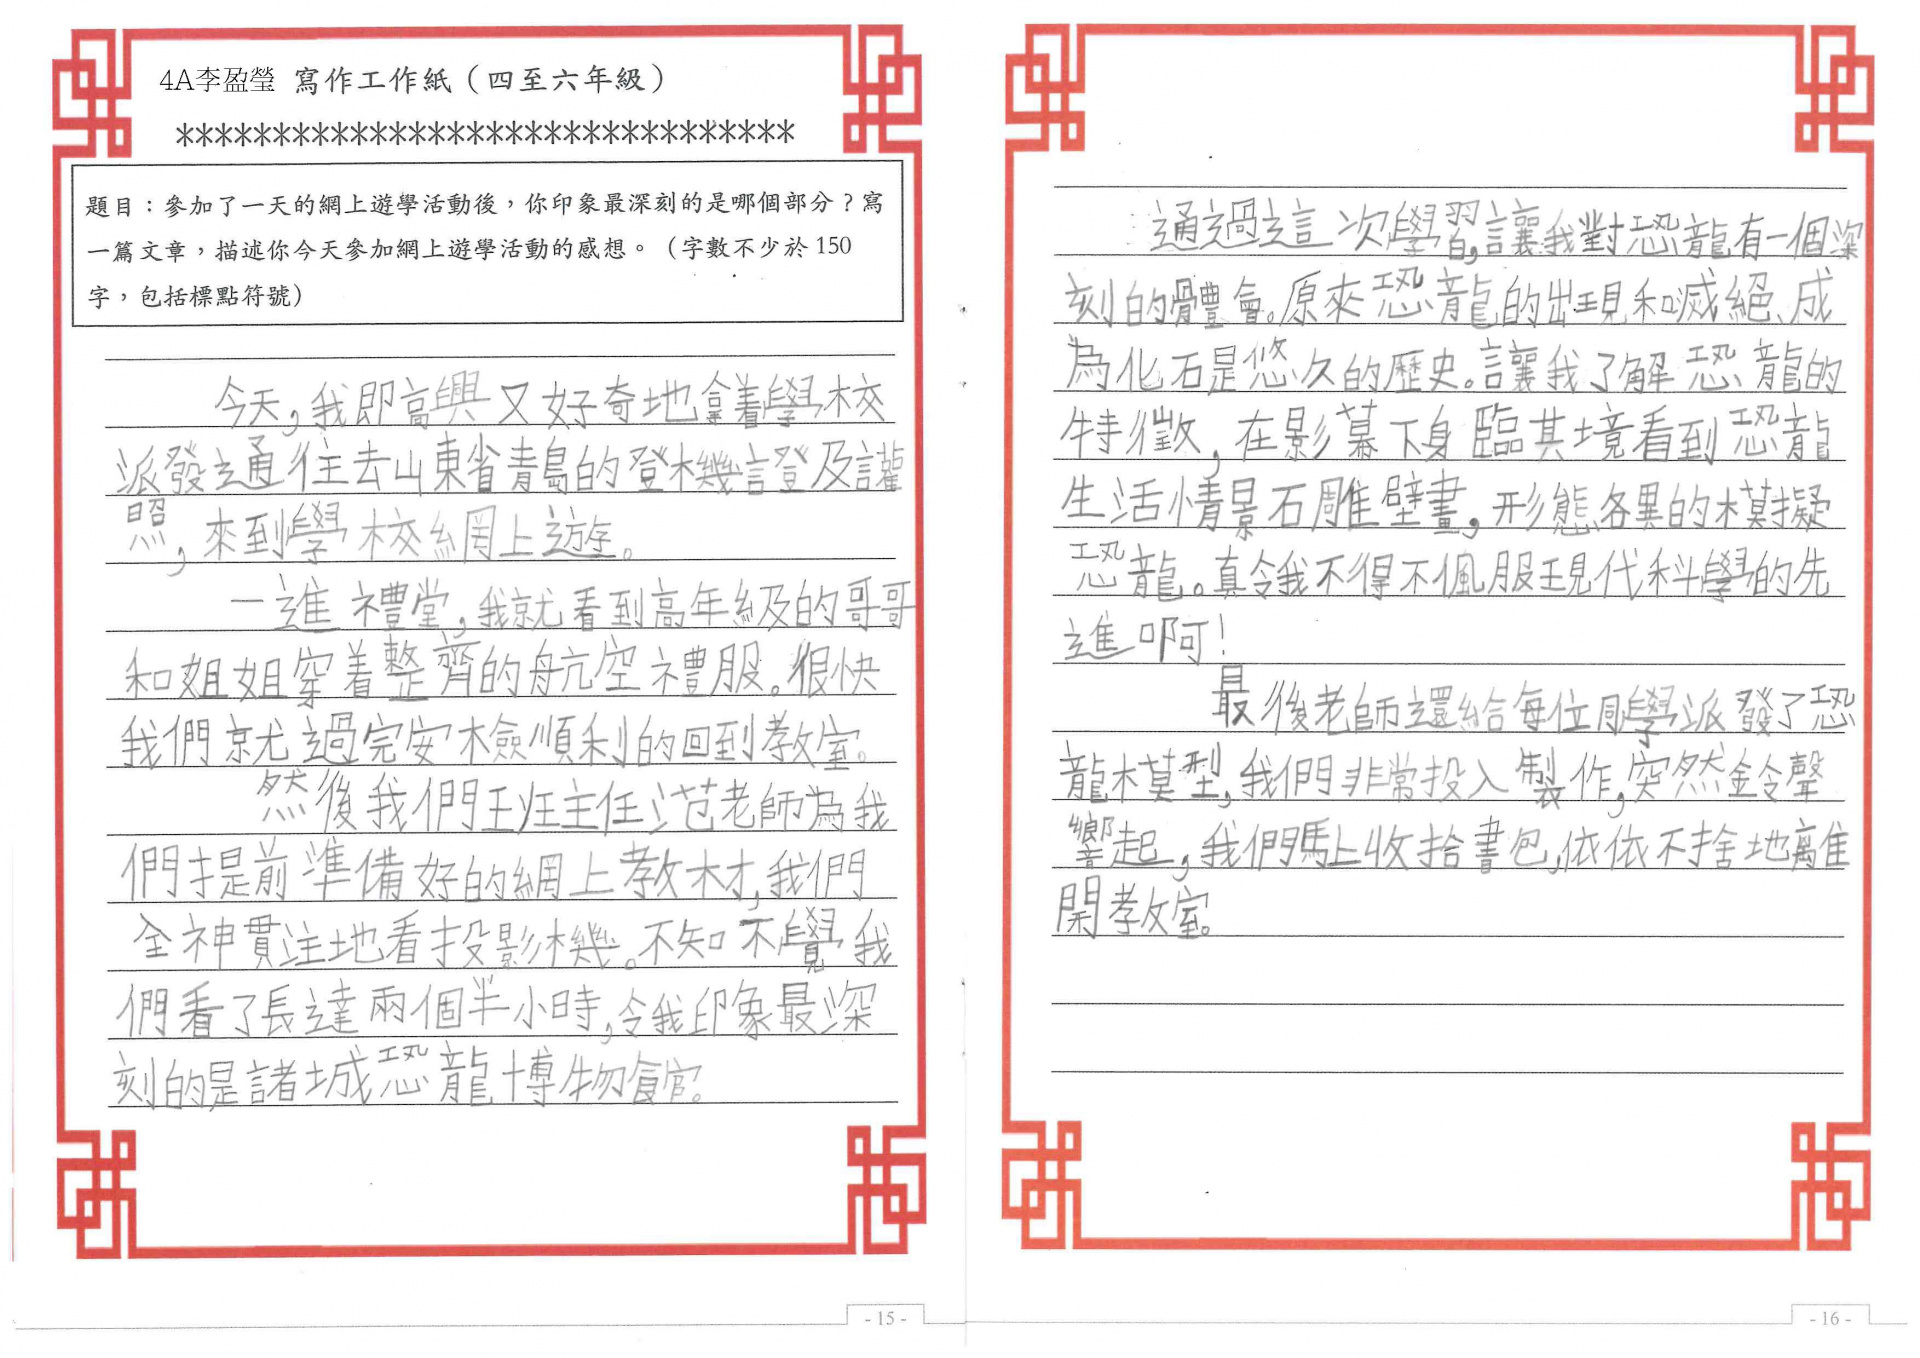 4A李盈瑩 寫作工作紙（四至六年級）
********************************
題目：參加了一天的網上遊學活動後，你印象最深刻的是哪個部分？寫
一篇文章，描述你今天參加網上遊學活動的感想。（字數不少於 150
字，包括標點符號）
今天，我即高興又好奇地拿着學校
派發通往去山東省青島的登機證及護
照，來到學校網上遊。
一進禮堂，我就看到高年級的哥哥
和姐姐穿着整齊的航空禮服。很快
我們就過完安檢順利的回到教室。
然後我們班主任范老師為我
們提前準備好的網上教材，我們
全神貫注地看投影機。不知不覺我
們看了長達兩個半小時，令我印象最深
刻的是諸城恐龍博物館。
- 15 -
通過這次學習，讓我對恐龍有一個深
刻的體會。原來恐龍的出現和滅絕、成
為化石是悠久的歷史。讓我了解恐龍的
特徵，在影幕下身臨其境看到恐龍
生活情景石雕壁畫，形態各異的模擬
恐龍。真令我不得不佩服現代科學的先
進啊！
最後老師還給每位同學派發了恐
龍模型，我們非常投入製作，突然鈴聲
響起，我們馬上收拾書包，依依不捨地離
開教室。
- 16 -